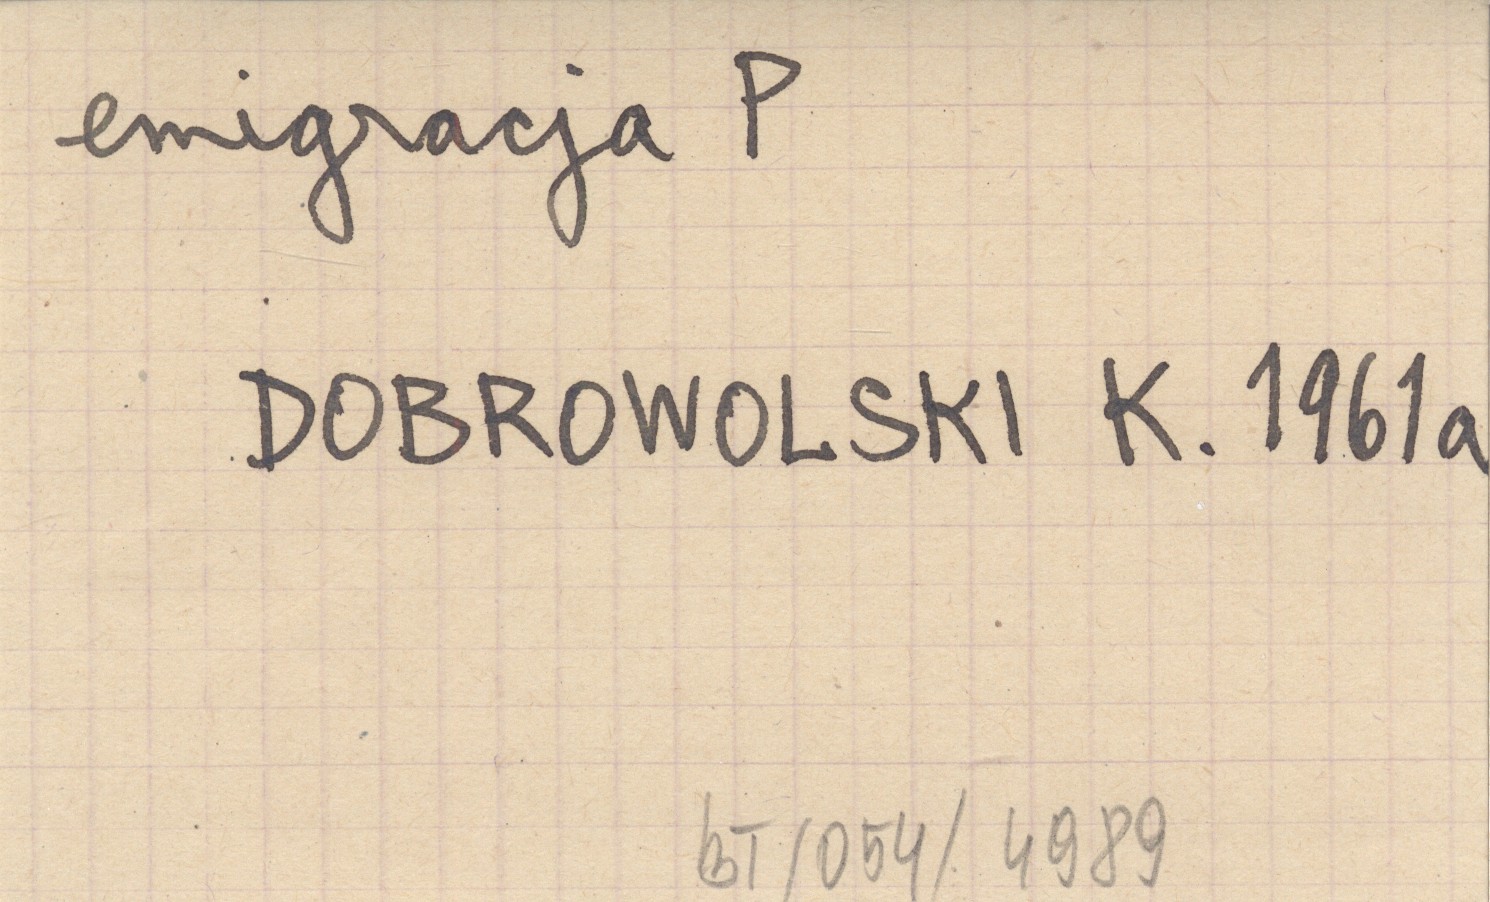 emigracja P
DOBROWOLSKI K. 1961a
BT/054/ 4989